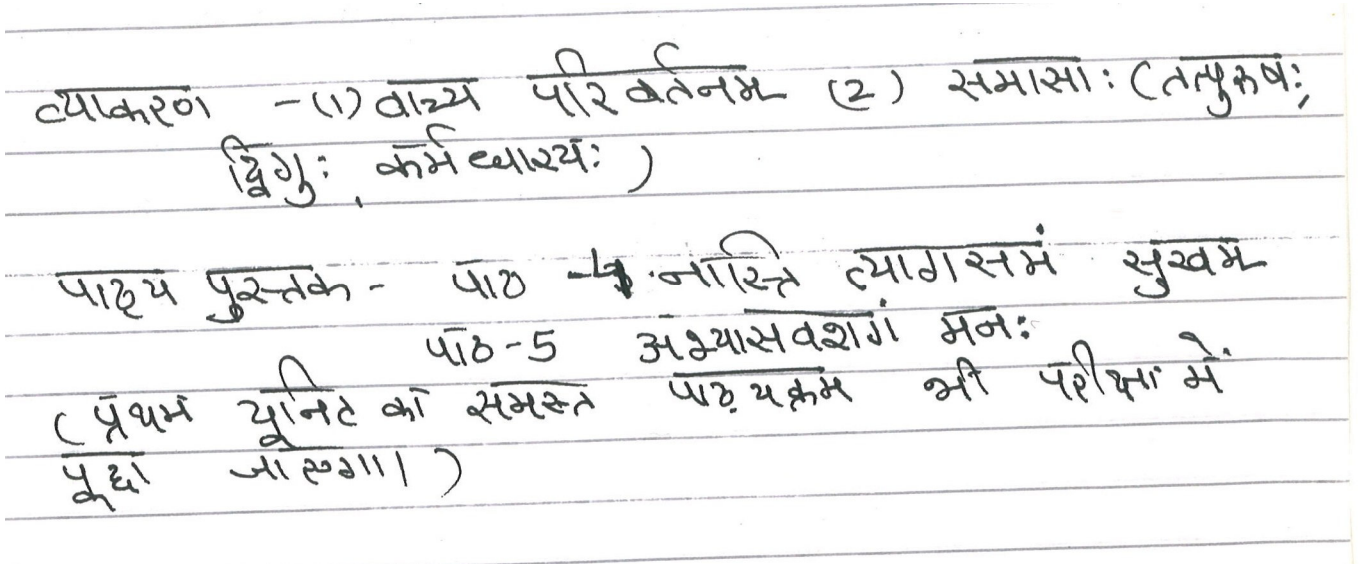 व्याकरण -(1) वाच्य परिवर्तनम (2) समासाः (तत्पुरुषः,
द्विगुः, कर्मधारयः)
पाठ्य पुस्तक - पाठ -4 नास्ति त्यागसमं सुखम
पाठ-5 अभ्यासवशगं मनः
(प्रथम यूनिट का समस्त पाठ्यक्रम भी परीक्षा में
पूछा जाएगा।)